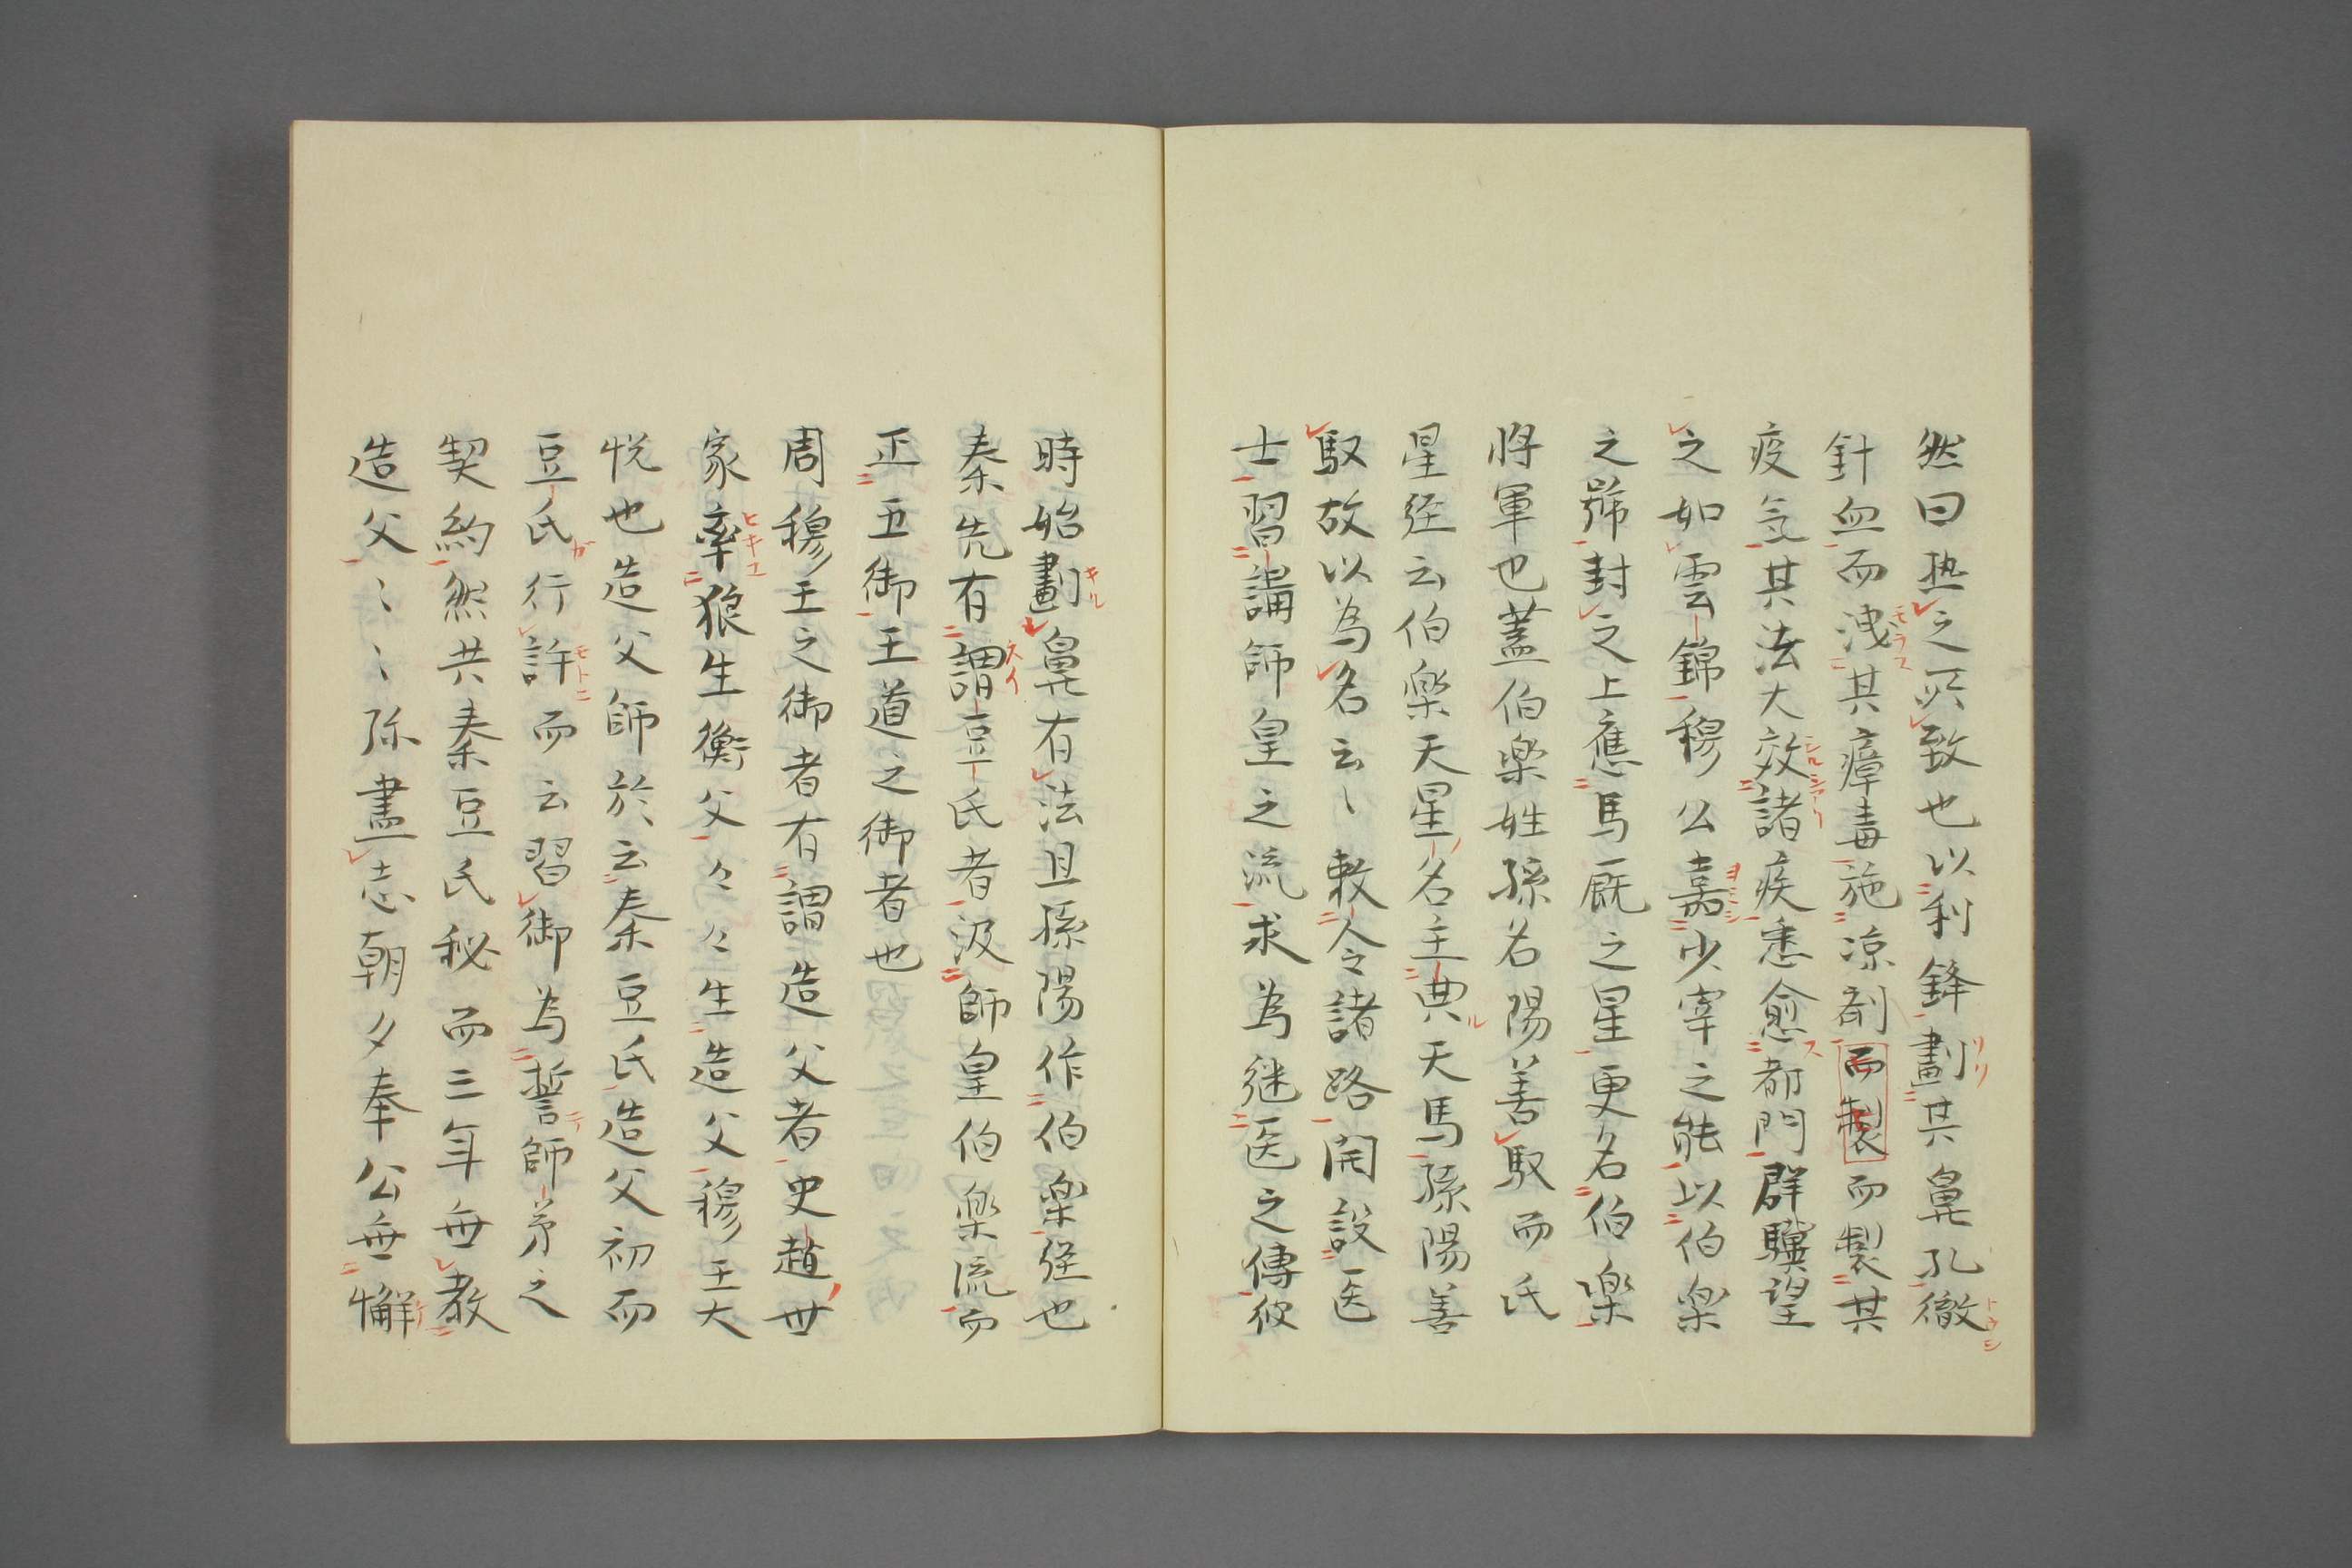 然曰热之所致也以利鋒劃其鼻孔徹
針血而洩其瘴毒施凉剤而製而製其
疫気其法大效諸疾悉愈都門群驥望
之如雲錦穆公嘉少宰之能以伯楽
之号封之上應馬厩之星更名伯楽
将軍也蓋伯楽姓孫名陽善馭而氏
星経云伯楽天星名主典天馬孫陽善
馭故以為名云〻敕令諸路開設医
士習講師皇之流求為継医之傳彼
時始劃鼻有法且孫陽作伯楽経也
秦先有謂豆氏者汲師皇伯楽流而
正五御王道之御者也
周穆王之御者有謂造父者史趙世
家率狼生衡父々々生造父穆王大
悦也造父師於云秦豆氏造父初而
豆氏行許而云習御為誓師弟之
契約然共秦豆氏秘而三年無教
造父〻〻弥盡志朝夕奉公無懈